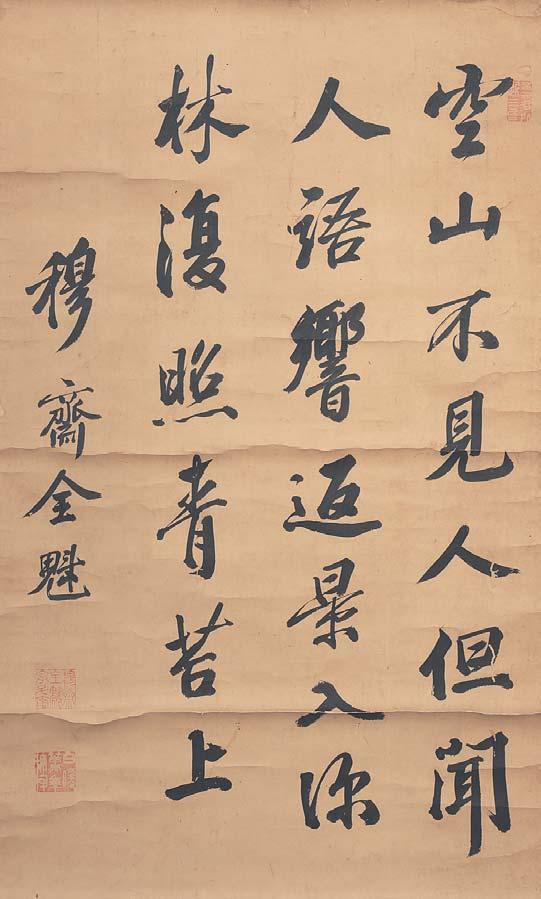 空山不見人但聞
人語響返景入深
林復照青苔上
穆齋全魁